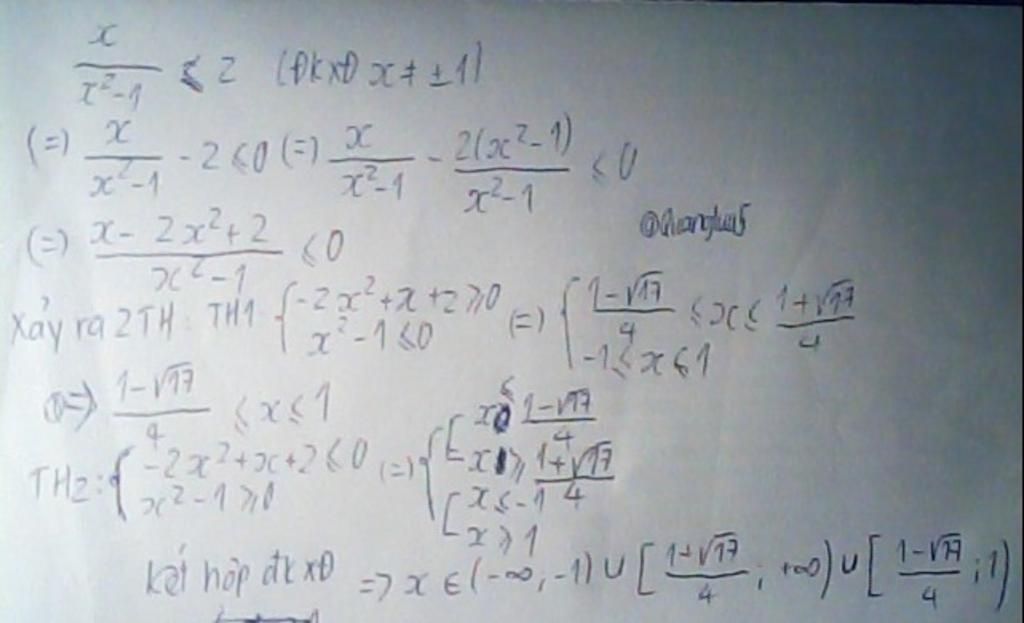 x/(x²-1) ≤ 2 (ĐKXĐ x ≠ ±1)
(=) x/(x²-1) - 2 ≤ 0 (=) x/(x²-1) - 2(x²-1)/(x²-1) ≤ 0
(=) (x - 2x² + 2)/(x²-1) ≤ 0
Xảy ra 2TH: TH1 { -2x²+x+2 ≥ 0 ; x²-1 ≤ 0 (=) { (1-√17)/4 ≤ x ≤ (1+√17)/4 ; -1 ≤ x ≤ 1
=> (1-√17)/4 ≤ x ≤ 1
TH2: { -2x²+x+2 ≤ 0 ; x²-1 ≥ 0 (=) { [ x ≤ (1-√17)/4 ; x ≥ (1+√17)/4 ; [ x ≤ -1 ; x ≥ 1
kết hợp đkxĐ => x ∈ (-∞; -1) ∪ [ (1+√17)/4 ; +∞) ∪ [ (1-√17)/4 ; 1)